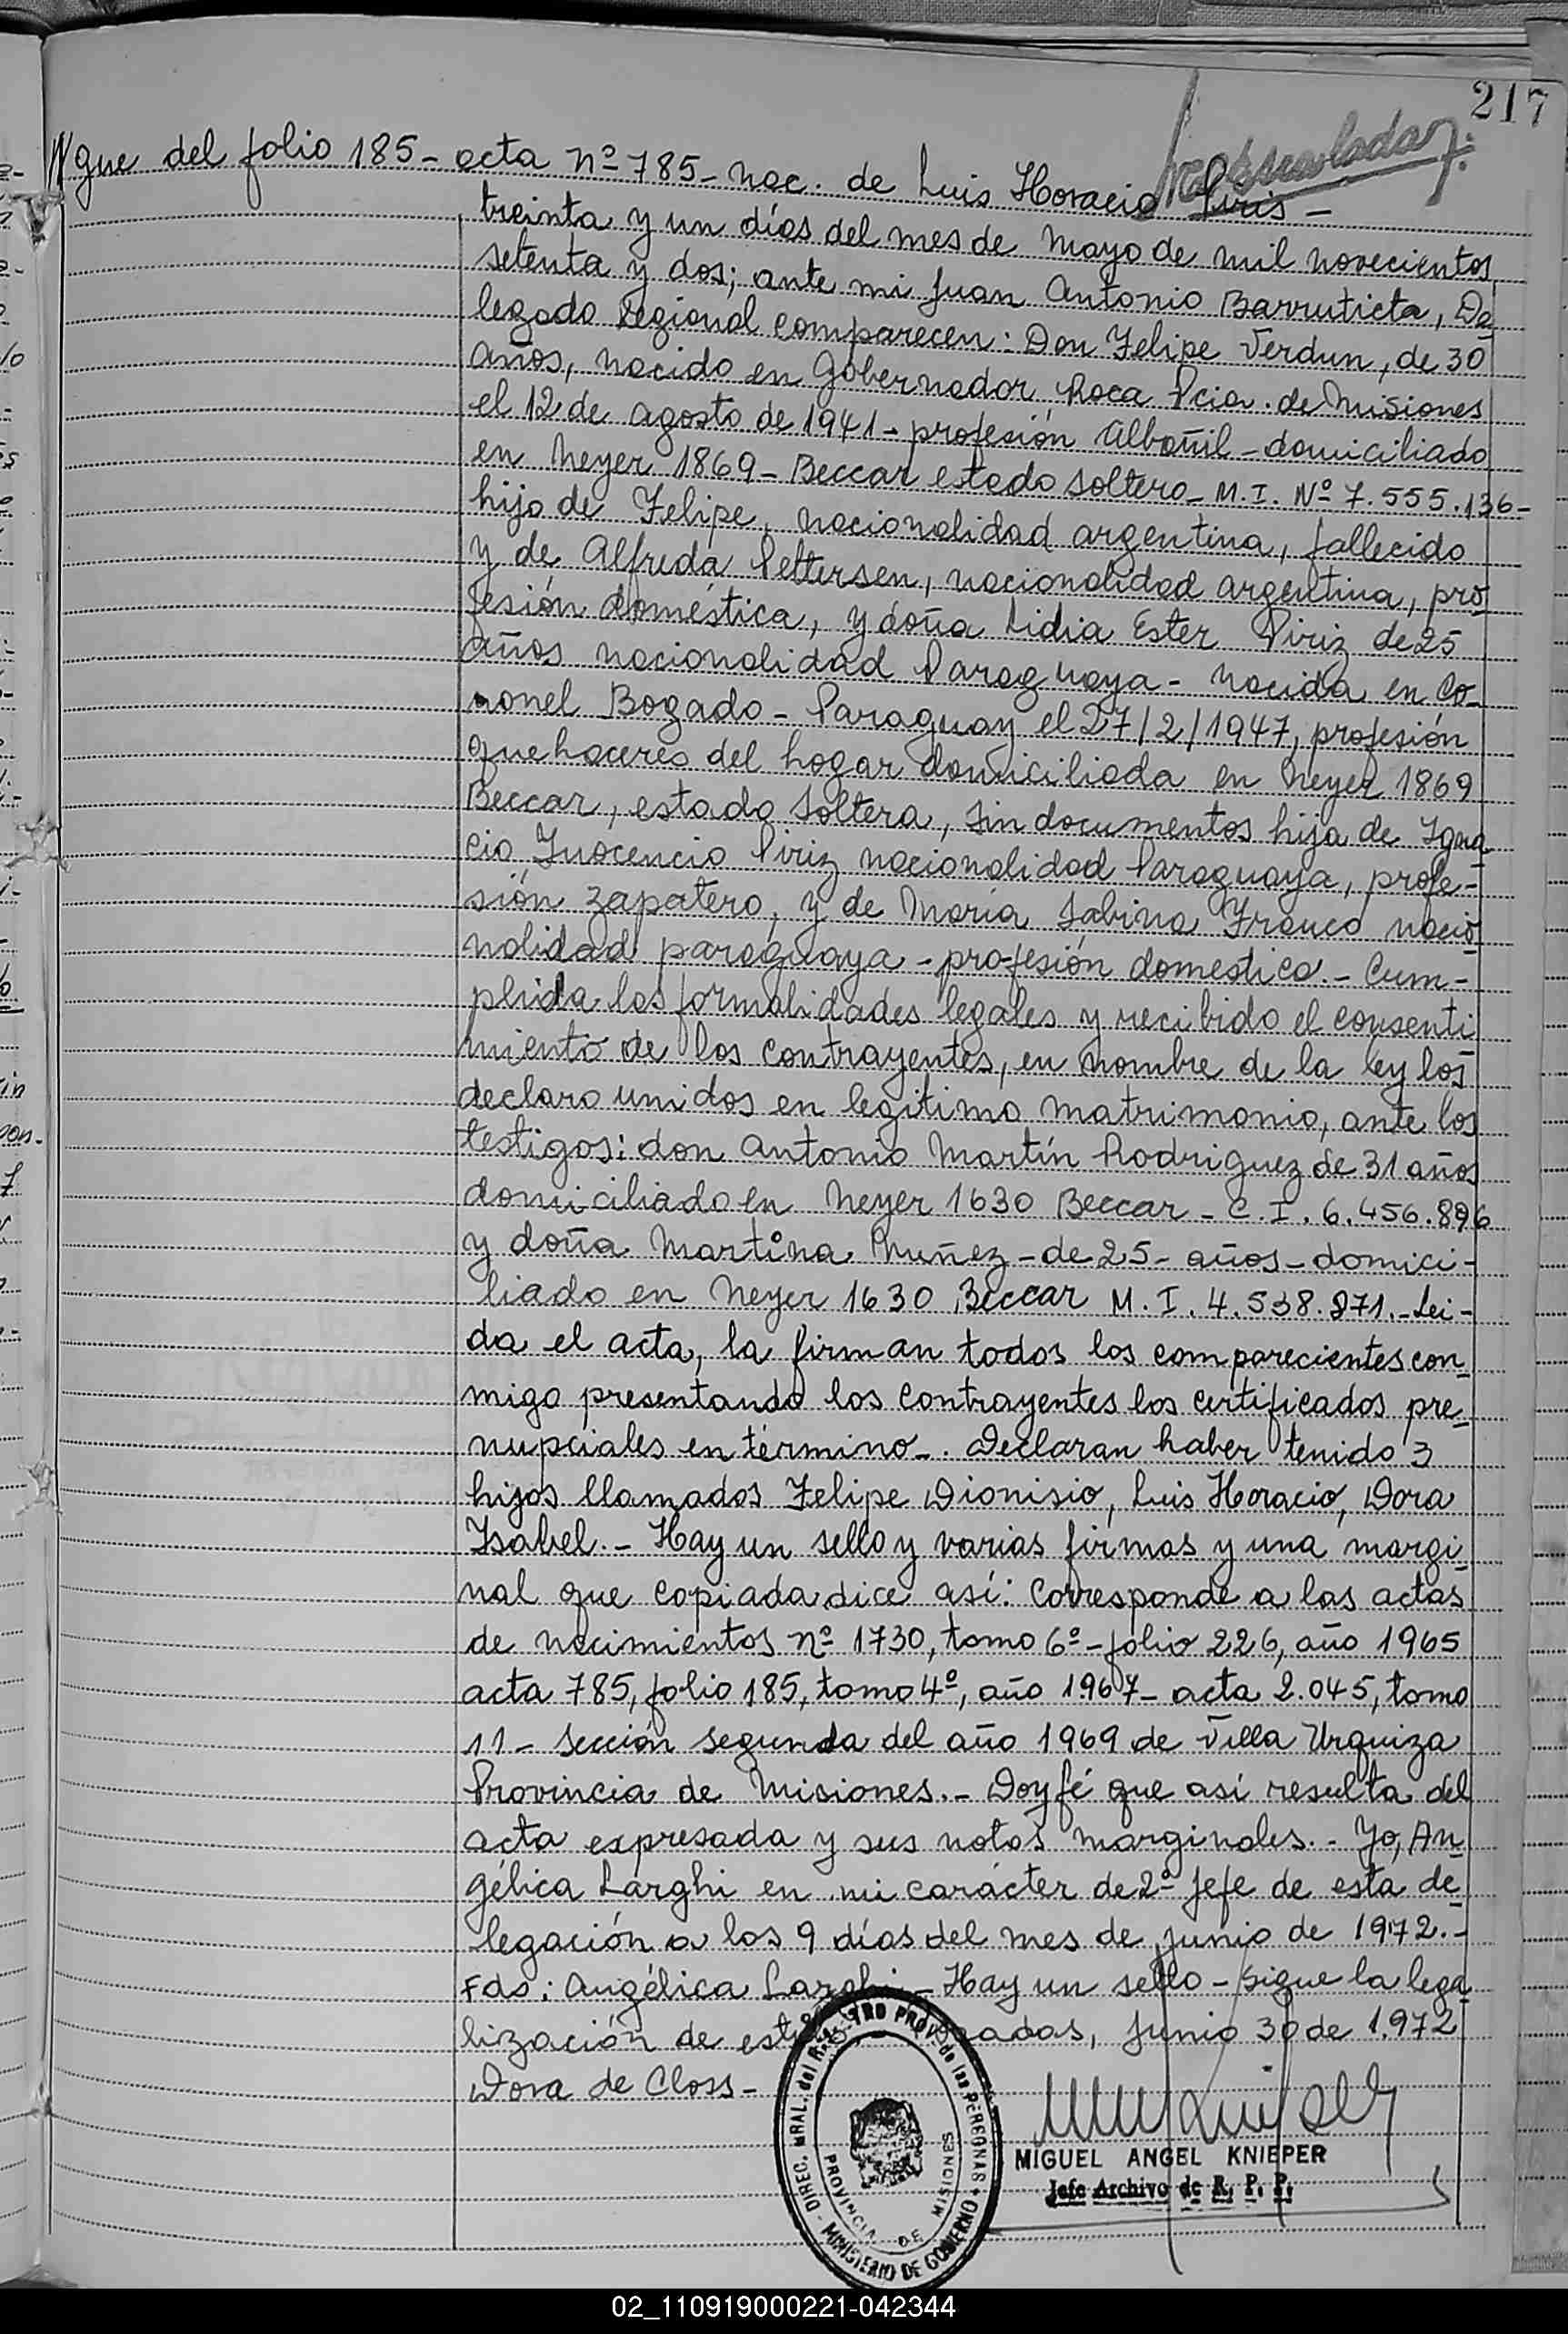 217
gue del folio 185 - acta nº 785 - nac. de Luis Horacio Piris -
treinta y un días del mes de mayo de mil novecientos
setenta y dos; ante mi Juan Antonio Barruticta, De
legado Regional comparecen: Don Felipe Verdun, de 30
años, nacido en Gobernador Roca Pcia. de Misiones
el 12 de agosto de 1941 - profesión Albañil - domiciliado
en Neyer 1869 - Beccar estado soltero - M.I. Nº 7.555.136 -
hijo de Felipe, nacionalidad argentina, fallecido
y de Alfreda Pettersen, nacionalidad argentina, pro
fesión doméstica, y doña Lidia Ester Piriz de 25
años nacionalidad Paraguaya - nacida en Co-
ronel Bogado - Paraguay el 27/2/1947, profesión
quehaceres del hogar domiciliada en Neyer 1869
Beccar, estado soltera, sin documentos hija de Igna
cio Inocencio Piriz nacionalidad Paraguaya, profe-
sión zapatero, y de María Sabina Franco nacio
nalidad paraguaya - profesión domestica. - Cum-
plida las formalidades legales y recibido el consenti
miento de los contrayentes, en nombre de la ley los
declaro unidos en legitimo matrimonio, ante los
testigos: don Antonio Martín Rodriguez de 31 años
domiciliado en Neyer 1630 Beccar - C.I. 6.456.896
y doña Martina Nuñez - de 25 - años - domici-
liado en Neyer 1630 Beccar M.I. 4.538.871. - Lei-
da el acta, la firman todos los comparecientes con
migo presentando los contrayentes los certificados pre-
nupciales en término -. Declaran haber tenido 3
hijos llamados Felipe Dionisio, Luis Horacio, Dora
Isabel. - Hay un sello y varias firmas y una margi
nal que copiada dice así: Corresponde a las actas
de nacimientos nº 1730, tomo 6º - folio 226, año 1965
acta 785, folio 185, tomo 4º, año 1967 - acta 2.045, tomo
11 - sección segunda del año 1969 de Villa Urquiza
Provincia de Misiones. - Doy fé que así resulta del
acta expresada y sus notas marginales. - Yo, An
gélica Larghi en mi carácter de 2º Jefe de esta de
legación a los 9 días del mes de junio de 1972. -
Fdo: Angélica Larghi - Hay un sello - sigue la lega
lización de estilo Posadas, Junio 30 de 1.972
Dora de Closs -
DIREC. GRAL. del REGISTRO PROV. de las PERSONAS
MINISTERIO DE GOBIERNO
PROVINCIA DE MISIONES
MIGUEL ANGEL KNIEPER
Jefe Archivo de R. P. P.
02_110919000221-042344